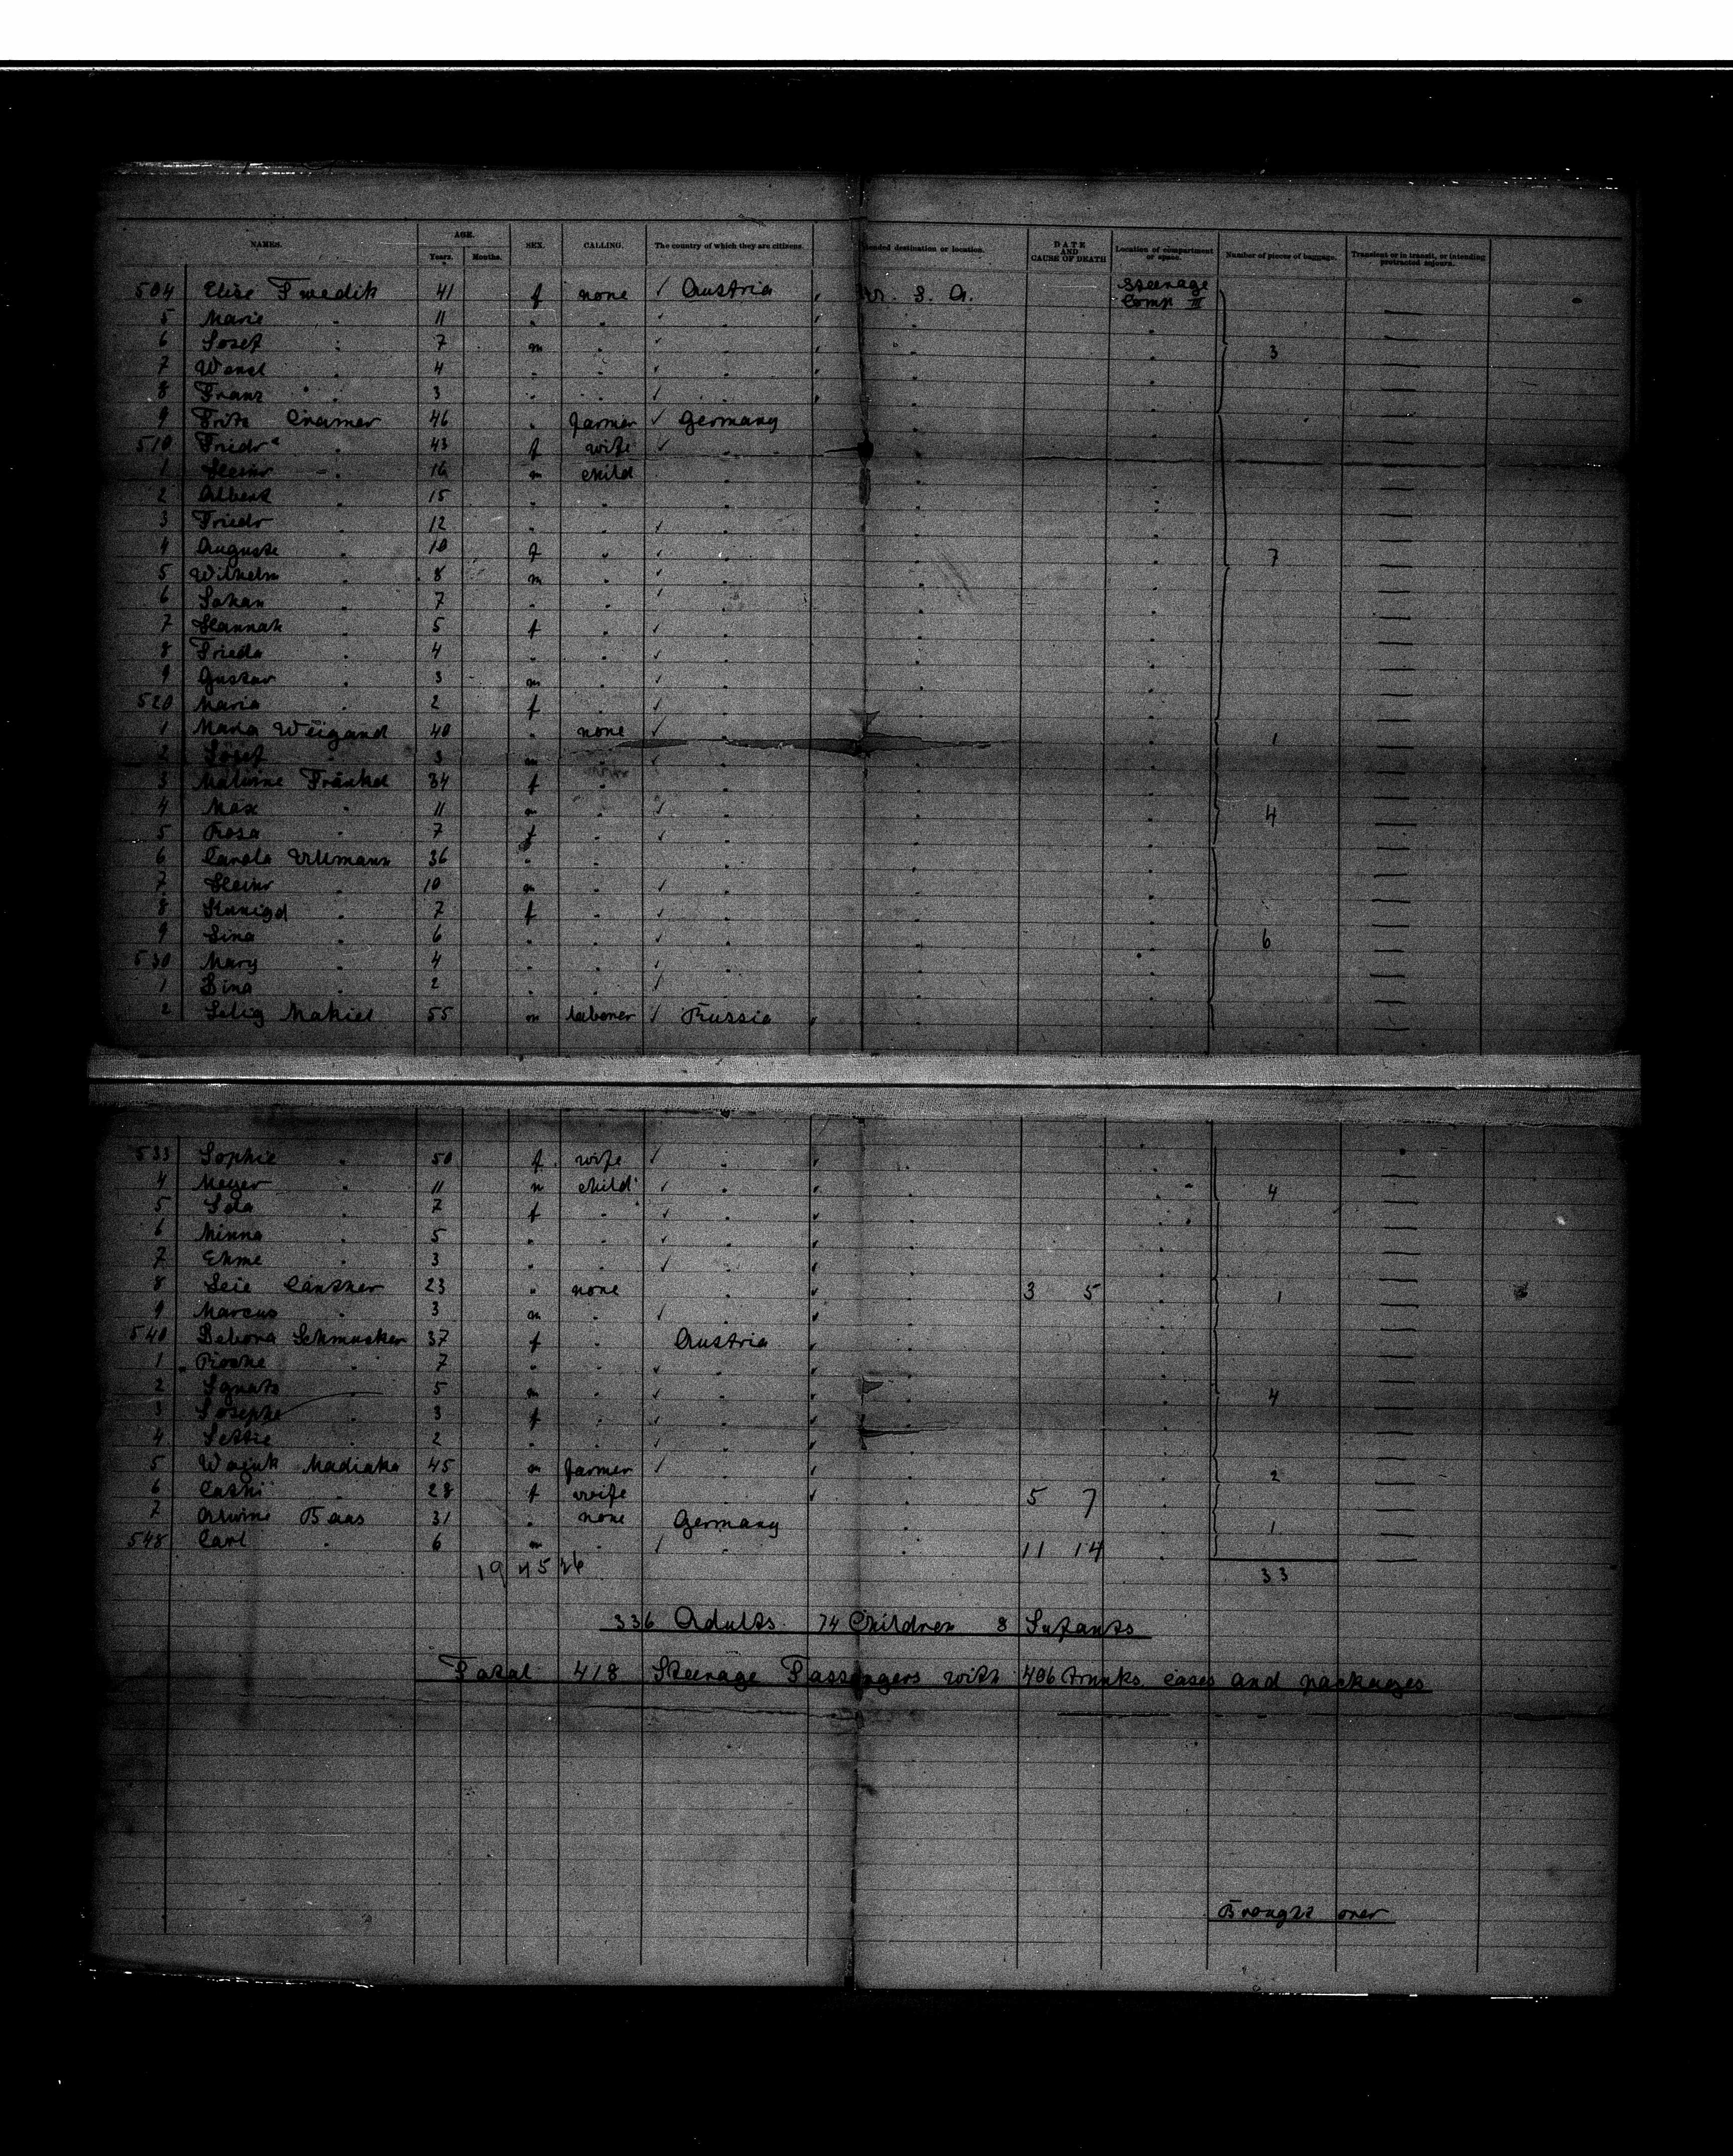 NAMES. AGE. Years. Months. SEX. CALLING. The country of which they are citizens. ended destination or location. DATE AND CAUSE OF DEATH Location of compartment or space. Number of pieces of baggage. Transient or in transit, or intending protracted sojourn.
504 Elise 41 f none ✓ Austria U. S. A. Steerage Comp III
5 Marie " 11 " " ✓ "
6 Josef " 7 m " ✓ " 3
7 Wenzl " 4 " " ✓ "
8 Franz " 3 " " ✓ "
9 Fritz Cramer 46 " farmer ✓ Germany
510 Friedr " 43 f wife ✓ "
1 Heinr " 16 m child "
2 Albert " 15 " " "
3 Friedr " 12 " " ✓ "
4 Auguste " 10 f " ✓ " 7
5 Wilhelm " 8 m " ✓ "
6 Johan " 7 " " ✓ "
7 Hannah " 5 f " ✓ "
8 Frieda " 4 " " ✓ "
9 Gustav " 3 m " ✓ "
520 Maria " 2 f " ✓ "
1 Maria Weigand 40 " none ✓ " 1
2 Josef " 3 m " ✓ "
3 Fränkel 34 f " "
4 Max " 11 m " ✓ " 4
5 Rosa " 7 f " ✓ "
6 Carola Ullmann 36 " " "
7 Heinr " 10 m " ✓ "
8 " 7 f " ✓ "
9 Lina " 6 " " ✓ " 6
530 Mary " 4 " " ✓ "
1 Bina " 2 " " ✓
2 Selig Makiel 55 m laborer ✓ Russia
533 Sophie " 50 f wife ✓ "
4 Meyer " 11 m child ✓ " 4
5 Ida " 7 f " ✓ "
6 Minna " 5 " " ✓ "
7 Ehme " 3 " " ✓ "
8 23 " none " 3 5 1
9 Marcus " 3 m " ✓ "
540 Debora Schmucker 37 f " Austria
1 " 7 " " ✓ "
2 Ignatz " 5 m " ✓ " 4
3 Josephe " 3 f " ✓ "
4 Jettie " 2 " " ✓ "
5 Madiaka 45 m farmer ✓ " 2
6 " 28 f wife 5 7
7 Alwine Baas 31 " none Germany 1
548 Carl " 6 m " ✓ " 11 14
33
336 Adults 74 Children 8 Infants
Total 418 Steerage Passengers with 406 trunks cases and packages
Brought over